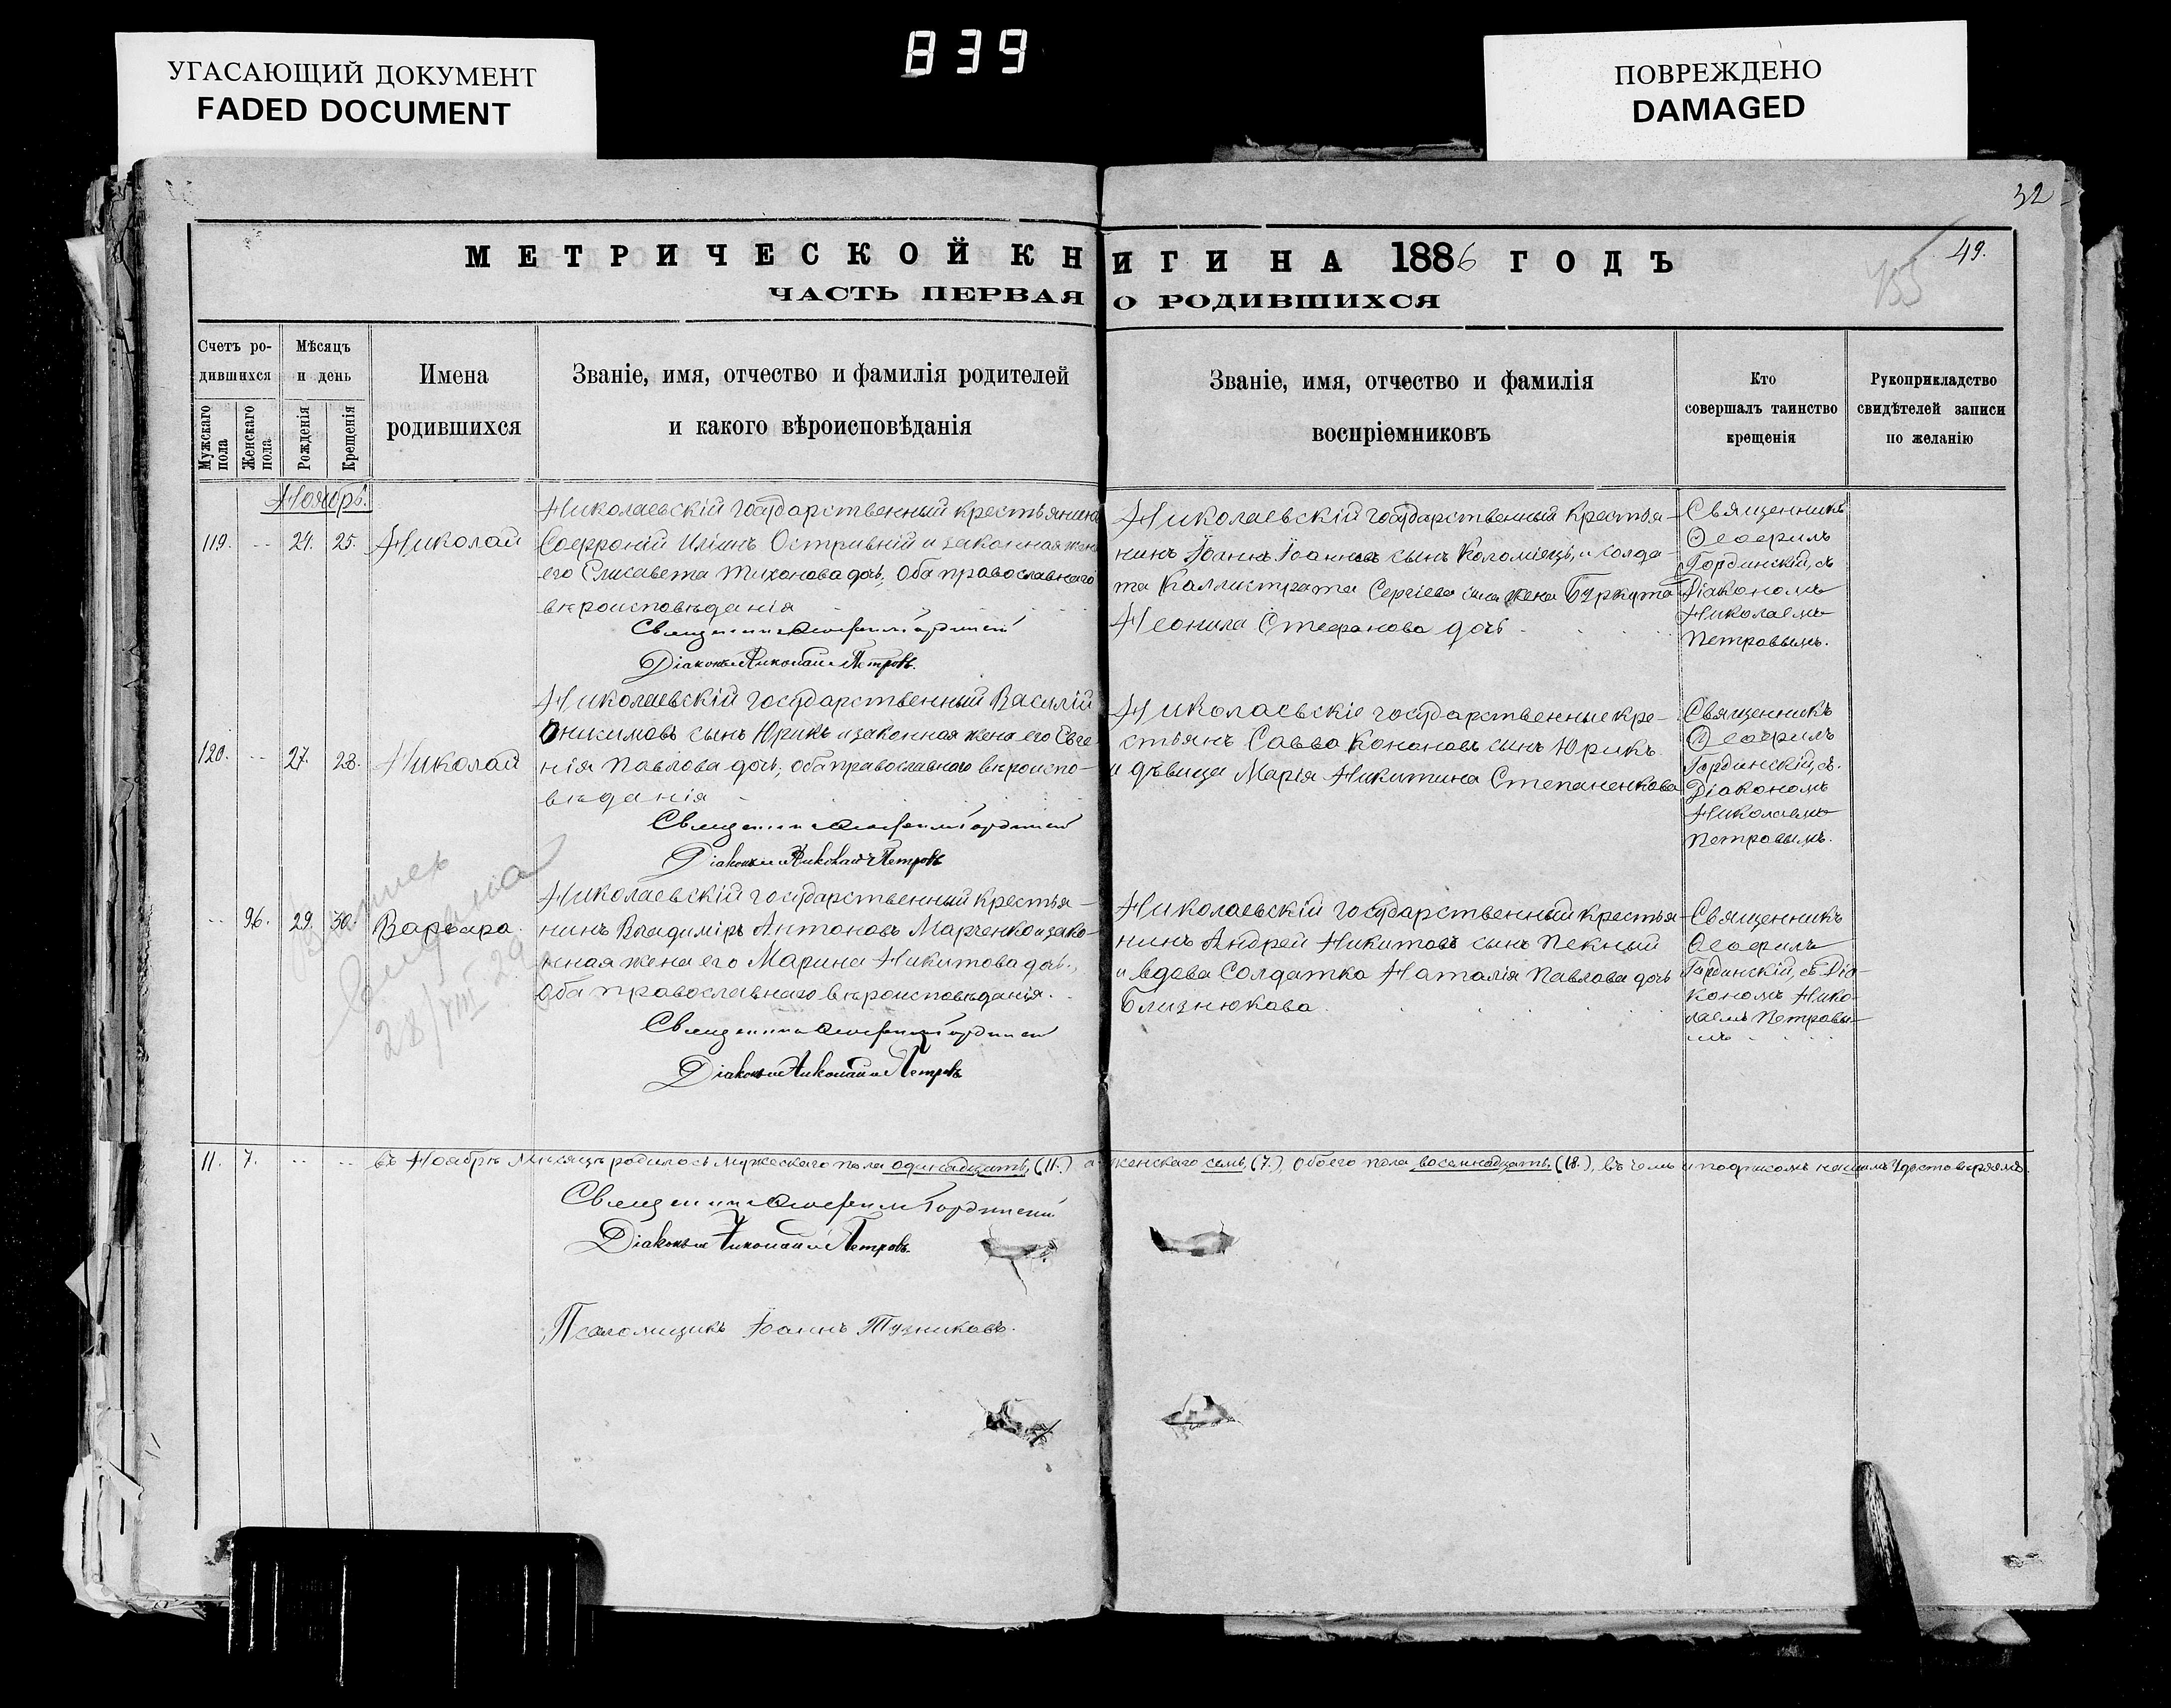 УГАСАЮЩИЙ ДОКУМЕНТ
FADED DOCUMENT
839
ПОВРЕЖДЕНО
DAMAGED
32
МЕТРИЧЕСКОЙ КНИГИ НА 1886 ГОДЪ
49.
ЧАСТЬ ПЕРВАЯ О РОДИВШИХСЯ
155
Счетъ ро-
дившихся
Мужскаго пола
Женскаго пола
Мѣсяцъ
и день
Рожденія
Крещенія
Имена
родившихся
Званіе, имя, отчество и фамилія родителей
и какого вѣроисповѣданія
Званіе, имя, отчество и фамилія
воспріемниковъ
Кто
совершалъ таинство
крещенія
Рукоприкладство
свидѣтелей записи
по желанію
Ноябрь.
119. -- 21. 25. Николай
Николаевскій государственный крестьянинъ
Софроній Иліинъ Остривній и законная жена
его Елисавета Тихонова дочь, Оба православнаго
вѣроисповѣданія
Священникъ Ѳеофилъ Гординскій
Діаконъ Николай Петровъ.
Николаевскій государственный крестья-
нинъ Іоаннъ Іоанновъ сынъ Коломіецъ, и солда-
та Каллистрата Сергіева сына жена Буркута
Неонила Стефанова дочь
Священникъ
Ѳеофилъ
Гординскій, съ
Діакономъ
Николаемъ
Петровымъ.
120. -- 27. 28. Николай
Николаевскій государственный Василій
Оникимовъ сынъ Юрикъ и законная жена его Евге-
нія Павлова дочь; оба православнаго вѣроиспо-
вѣданія
Священникъ Ѳеофилъ Гординскій
Діаконъ Николай Петровъ
Николаевскіе государственные кре-
стьянъ Савва Конановъ сынъ Юрикъ
и дѣвица Марія Никитина Степаненкова
Священникъ
Ѳеофилъ
Гординскій, съ
Діакономъ
Николаемъ
Петровымъ.
-- 96. 29. 30. Варвара.
28/VIII 29
Николаевскій государственный крестья-
нинъ Владиміръ Антоновъ Марченко и зако-
нная жена его Марина Никитова дочь.,
Оба православнаго вѣроисповѣданія.
Священникъ Ѳеофилъ Гординскій
Діаконъ Николай Петровъ
Николаевскій государственный крестья-
нинъ Андрей Никитовъ сынъ Пекный
и вдова Солдатка Наталія Павлова дочь
Близнюкова
Священникъ
Ѳеофилъ
Гординскій, съ Діа-
кономъ Нико-
лаемъ Петровы-
мъ
11. 7. -- -- Въ Ноябрѣ Мѣсяцѣ родилось мужескаго пола одинадцать, (11.) а женскаго семь, (7.), Обоего пола восемнадцать (18.), въ чемъ и подписомъ нашимъ удостовѣряемъ.
Священникъ Ѳеофилъ Гординскій
Діаконъ Николай Петровъ.
Псаломщикъ Іоаннъ Тузниковъ.